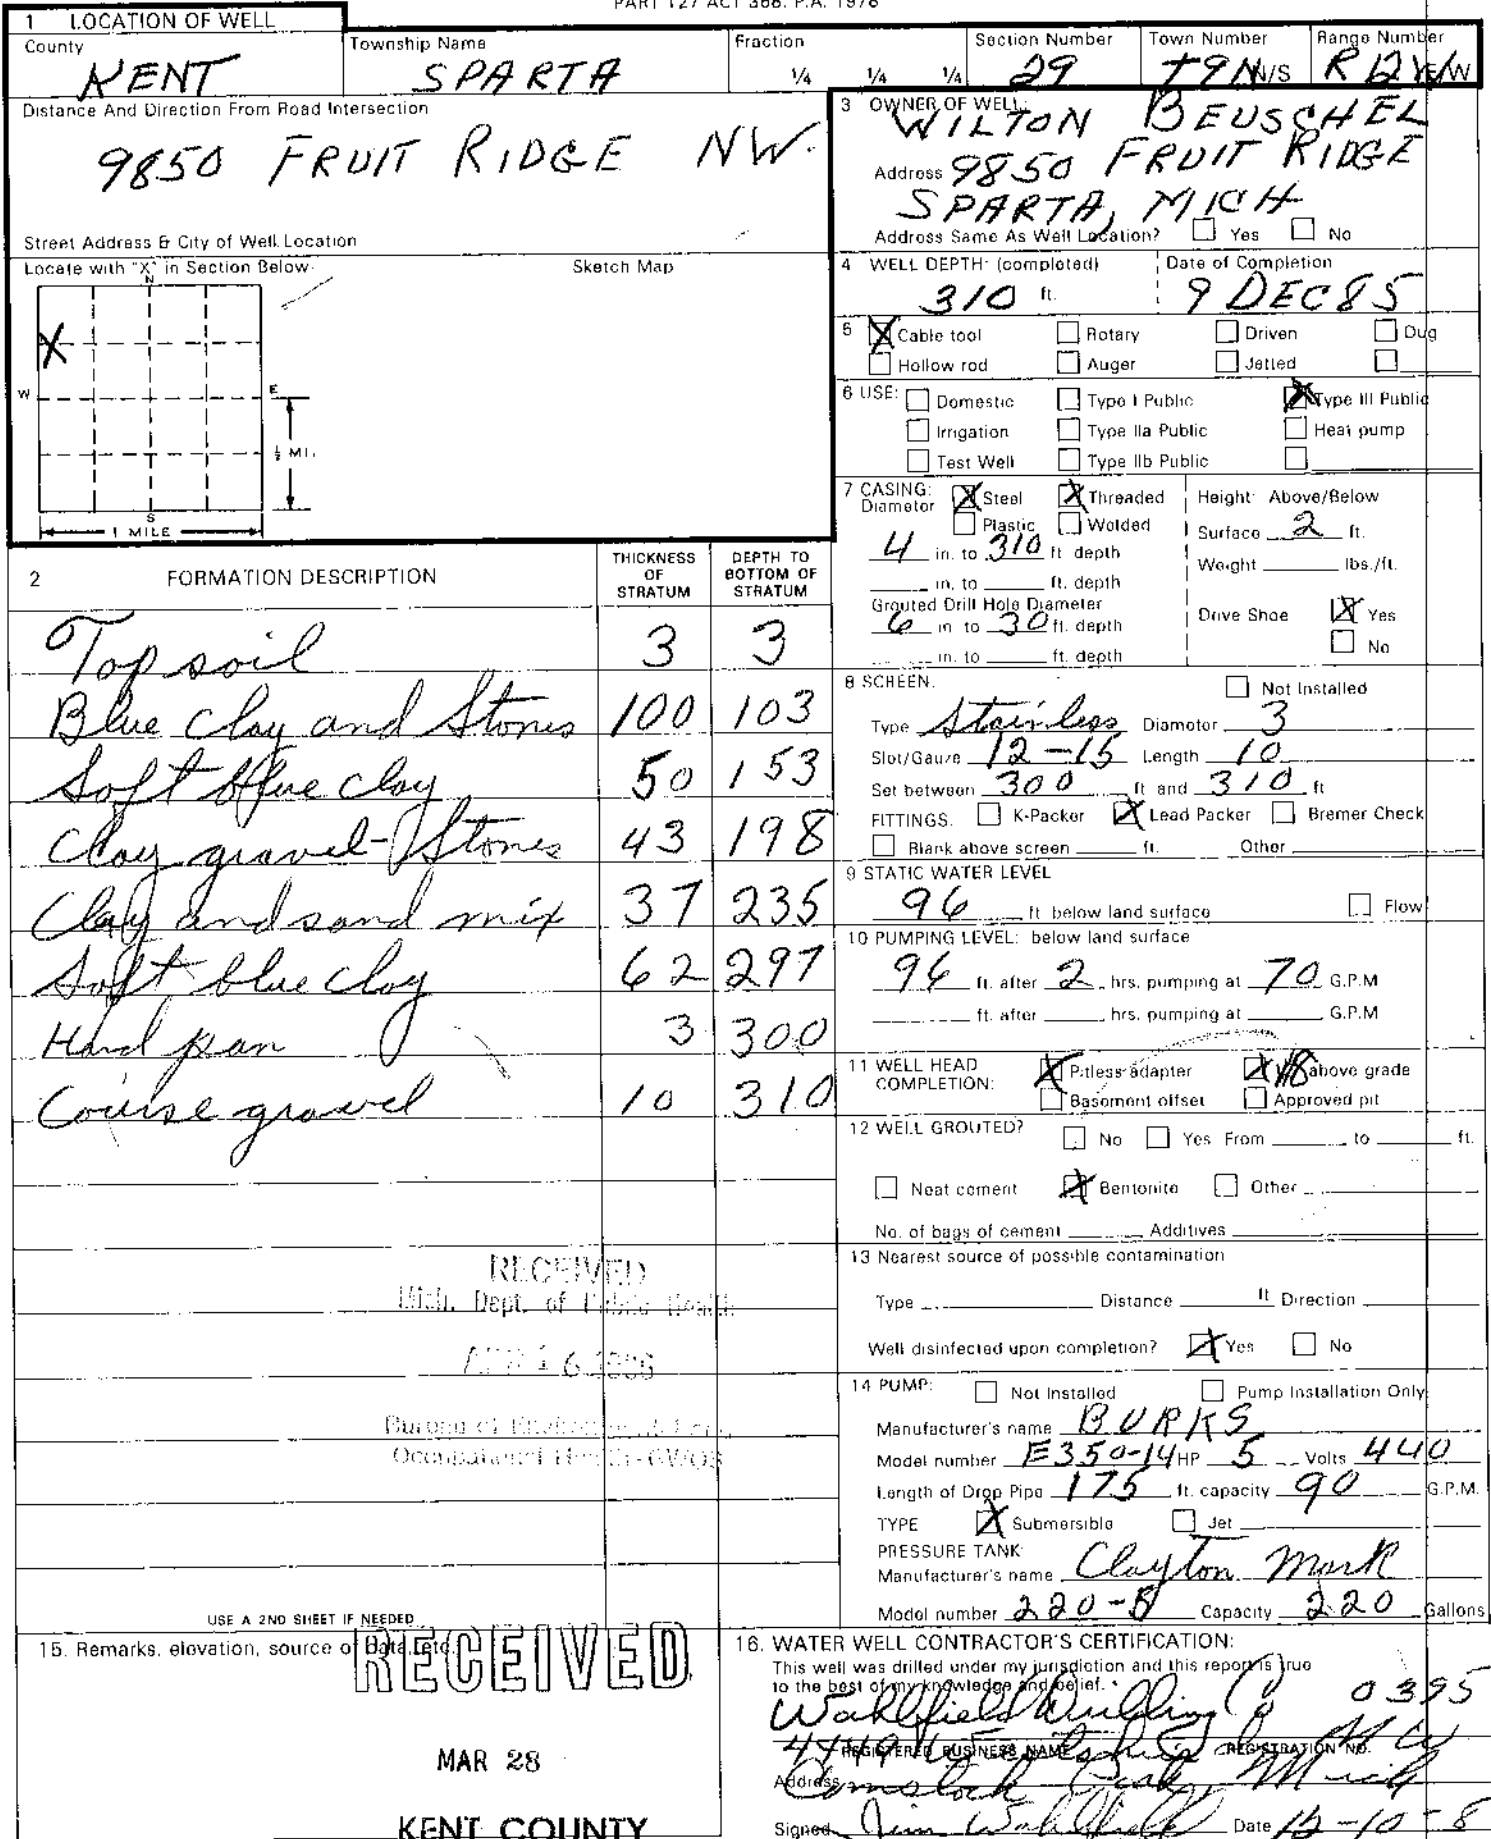 PART 127 ACT 368. P.A. 1978
1 LOCATION OF WELL
County KENT
Township Name SPARTA
Fraction 1/4 1/4 1/4
Section Number 29
Town Number T9N N/S
Range Number R12W E/W
Distance And Direction From Road Intersection
9850 FRUIT RIDGE NW.
Street Address & City of Well Location
Locate with "X" in Section Below
Sketch Map
N
X
W E
1/2 MI.
S
1 MILE
3 OWNER OF WELL:
WILTON BEUSCHEL
Address 9850 FRUIT RIDGE
SPARTA, MICH
Address Same As Well Location? Yes No
4 WELL DEPTH: (completed) Date of Completion
310 ft. 9 DEC 85
5 X Cable tool Rotary Driven Dug
Hollow rod Auger Jetted
6 USE: Domestic Type I Public X Type III Public
Irrigation Type IIa Public Heat pump
Test Well Type IIb Public
7 CASING: X Steel X Threaded Height: Above/Below
Diameter Plastic Welded Surface 2 ft.
4 in. to 310 ft. depth Weight lbs./ft.
in. to ft. depth
Grouted Drill Hole Diameter Drive Shoe X Yes
6 in to 30 ft. depth No
in. to ft. depth
2 FORMATION DESCRIPTION THICKNESS OF STRATUM DEPTH TO BOTTOM OF STRATUM
Top soil 3 3
Blue clay and Stones 100 103
Soft blue clay 50 153
Clay gravel-Stones 43 198
Clay and sand mix 37 235
Soft blue clay 62 297
Hard pan 3 300
Course gravel 10 310
8 SCREEN: Not Installed
Type Stainless Diameter 3
Slot/Gauze 12-15 Length 10
Set between 300 ft and 310 ft
FITTINGS: K-Packer X Lead Packer Bremer Check
Blank above screen ft. Other
9 STATIC WATER LEVEL
96 ft below land surface Flow
10 PUMPING LEVEL: below land surface
96 ft. after 2 hrs. pumping at 70 G.P.M
ft. after hrs. pumping at G.P.M
11 WELL HEAD COMPLETION: X Pitless adapter X 18 above grade
Basement offset Approved pit
12 WELL GROUTED? No Yes From to ft.
Neat cement X Bentonite Other
No. of bags of cement Additives
13 Nearest source of possible contamination
Type Distance ft Direction
Well disinfected upon completion? X Yes No
14 PUMP: Not Installed Pump Installation Only
Manufacturer's name BURKS
Model number E350-14 HP 5 Volts 440
Length of Drop Pipe 175 ft. capacity 90 G.P.M.
TYPE X Submersible Jet
PRESSURE TANK:
Manufacturer's name Clayton Mark
Model number 220-5 Capacity 220 Gallons
RECEIVED
Mich. Dept. of Public Health
Bureau of
Occupational
USE A 2ND SHEET IF NEEDED
15. Remarks, elevation, source of data, etc.
RECEIVED
MAR 28
KENT COUNTY
16. WATER WELL CONTRACTOR'S CERTIFICATION:
This well was drilled under my jurisdiction and this report is true
to the best of my knowledge and belief.
Wahlfield Drilling Co 0395
REGISTERED BUSINESS NAME REGISTRATION NO.
Address
Comstock Park, Mich
Signed Jim Wahlfield Date 12-10-8